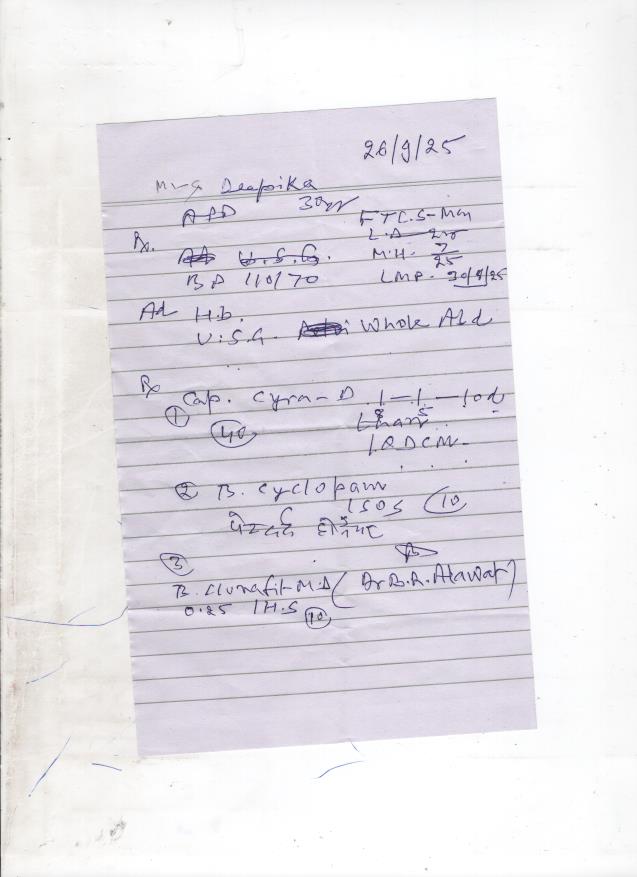 26/9/25
Mrs Deepika
30yr
APD
FTCS-Man
Rx.
U.S.G.
M.H. 7/25
BP 110/70
LMP. 30/8/25
Ad H.b.
U.S.G. Whole Abd
Rx
① Cap. Cyra-D 1-1-1od
40
② B. Cyclopam
1SOS 10
पेट दर्द होने पर
③
B. Clonafit M.D (Dr B.R. Atawat)
0.25 1H.S 10